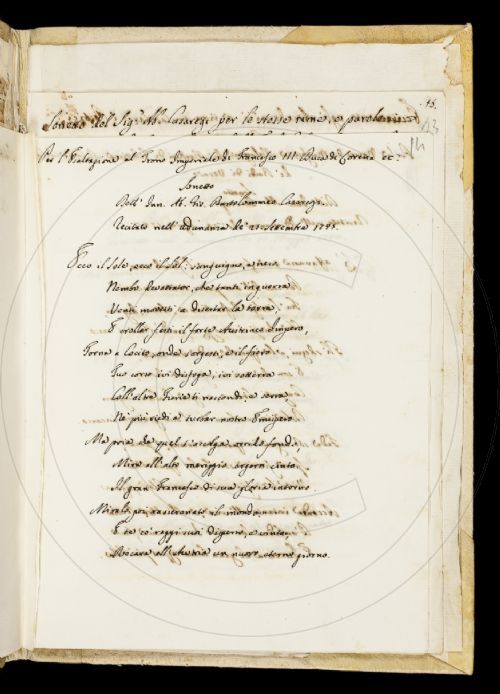 13.
Sonetto del Sig.r Ab. Casaregi per le stesse rime, e parole
13
14
Per l'Esaltazione al Trono Imperiale di Francesco III Duca di Lorena ec:
Sonetto
Dell' Ab. Gio. Bartolommeo Casaregi
Recitato nell' adunanza de' 23. Settembre 1745.
Ecco il Sole, ecco il Sol: sanguigno, e nero
Nembo Devastator, che tanti in guerra
Venti movesti a disertar la terra,
E crollar festi il forte Austriaco Impero,
Torna a Cocito, onde sorgesti, e il fiero
Tuo corso ivi disfoga, ivi sotterra
Coll' altre Furie ti nascondi, e serra
Nè più riedi a turbar nostro Emispero
Ma pria che quel t'accolga orrido fondo,
Mira all' alto meriggio ergersi cinto
Il gran Francesco di sua gloria intorno
Miralo poi rasserenato il mondo,
E te co' raggi suoi disperso, e vinto
Recare all' Austria un nuovo eterno giorno.